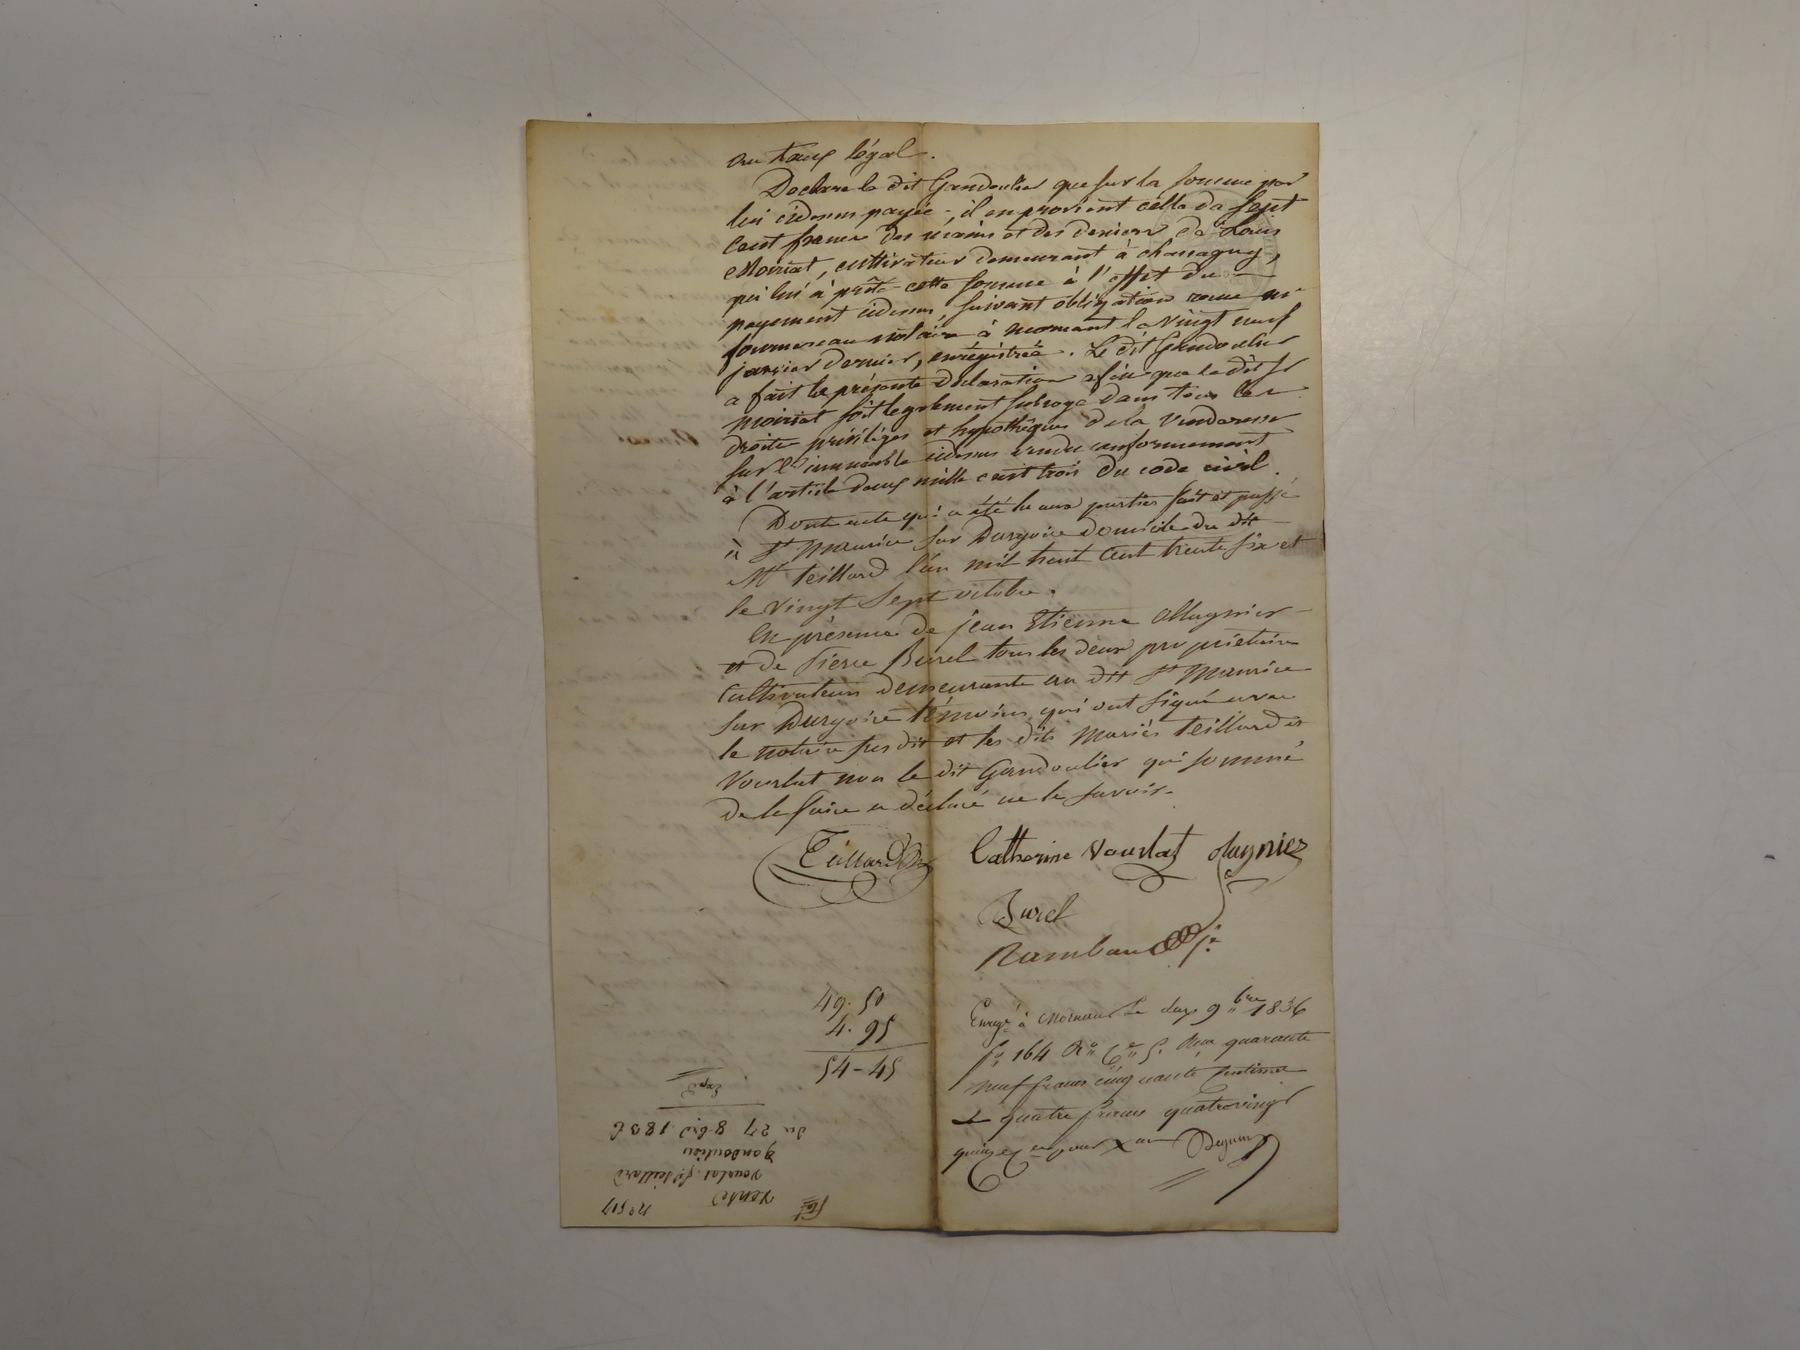 au taux légal.
Declare le dit Gandoulier que sur la somme par
lui cidessus payée, il en provient celle de Sept
Cent francs des mains et des deniers de
Moiriat, cultivateur demeurant à chassagny,
qui lui à prêté cette somme à l'effet du
payement cidessus, suivant obligation recue me
fournereau notaire à mornant le vingt neuf
janvier dernier, enregistrée. Le dit Gandoulier
a fait la présente declaration afin que le dit Sr
moiriat soit legalement subrogé dans tous les
droits privilèges et hypothèques de la venderesse
sur l'immeuble cidessus vendu conformement
à l'article deux mille cent trois du code civil.
Dont acte qui a été lu aux parties fait et passé
à St Maurice sur Dargoire domicile du dit
Mr teillard l'an mil huit Cent trente six et
le vingt Sept octobre.
En présence de jean Etienne Magnier
et de Pierre Burel tous les deux proprietaires
Cultivateurs demeurants au dit St Maurice
sur Dargoire témoins qui ont signé avec
le notaire susdit et les dits mariés teillard et
Vourlat non le dit Gandoulier qui sommé
de le faire a déclaré ne le savoir.
Teillard Catherine Vourlat Magnier
Burel
Rambaud
49. 50
4. 95
54-45
Enregé à Mornant le deux 9bre 1836
fo 164 Ro Ce 5. Reçu quarante
neuf francs cinquante centimes
et quatre francs quatrevingt
quinze ces pour
No 517
Vente
Vourlat fe teillard
Gandoulier
du 27 8bre 1836
Expé